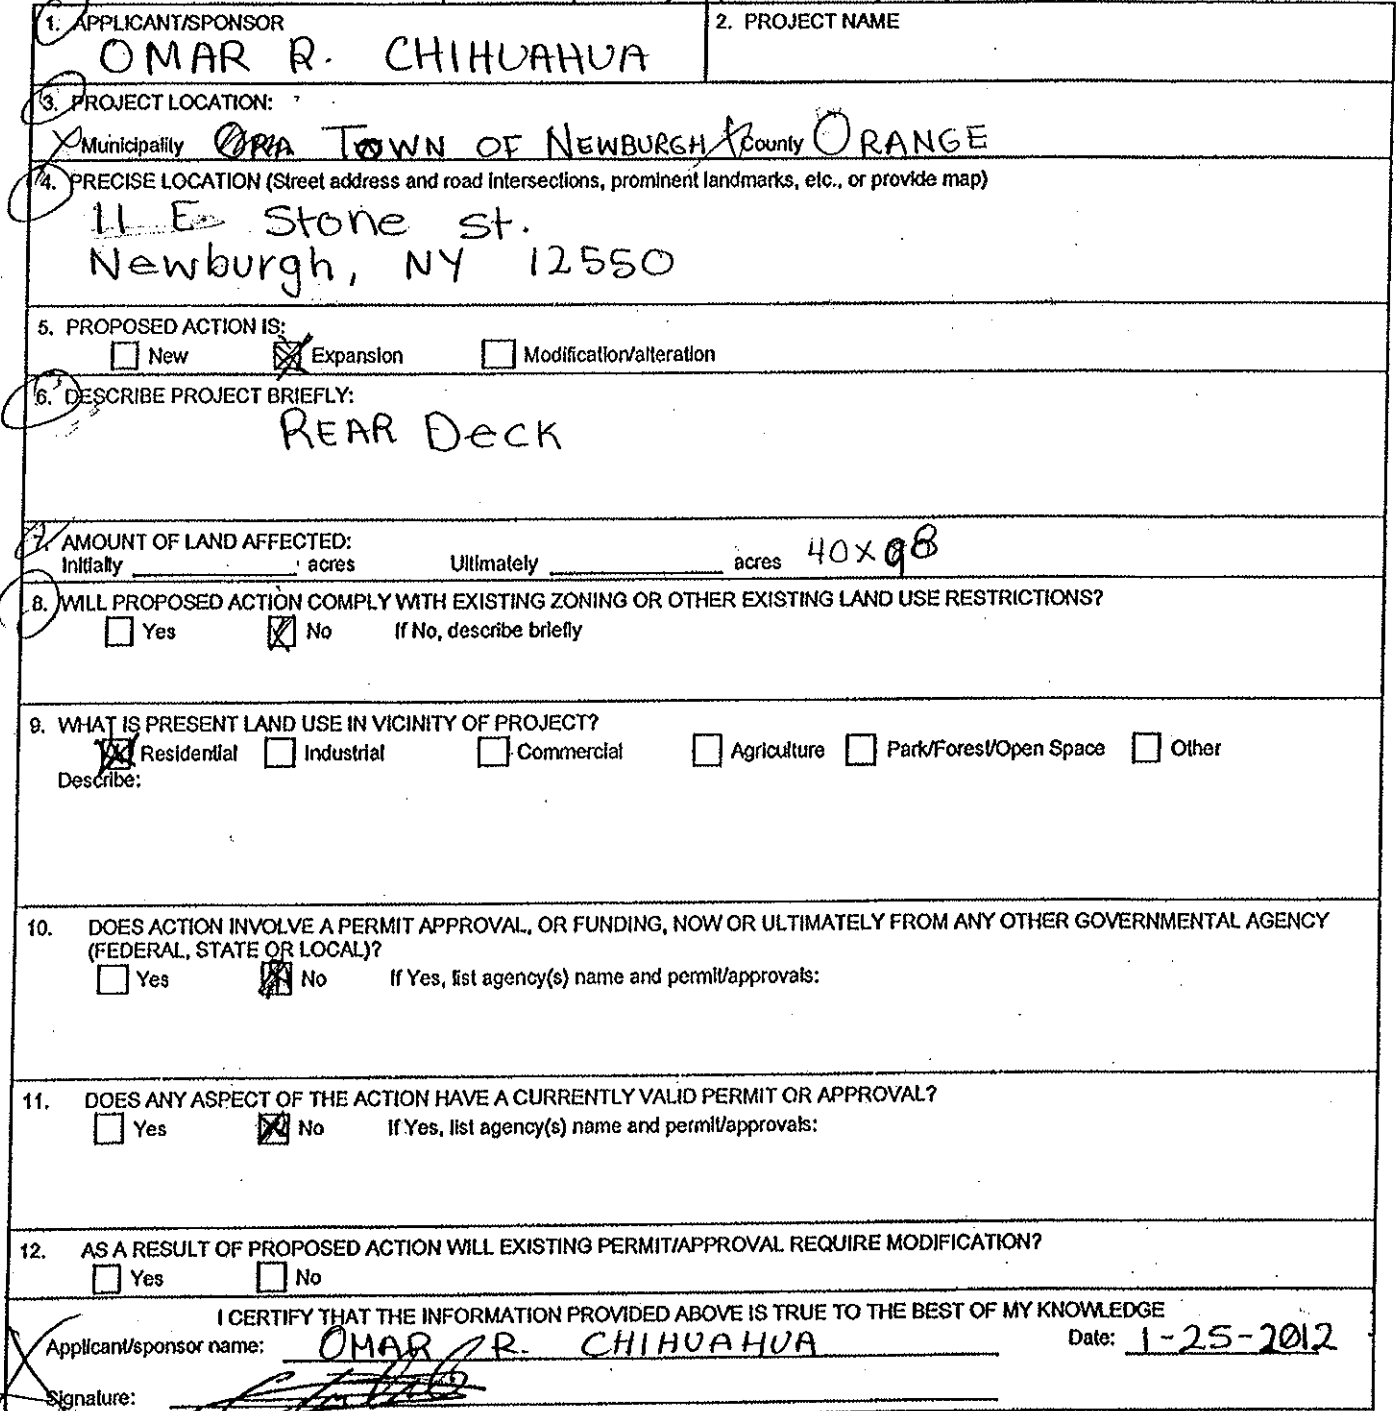 1. APPLICANT/SPONSOR
OMAR R. CHIHUAHUA
2. PROJECT NAME
3. PROJECT LOCATION:
Municipality TOWN OF NEWBURGH County ORANGE
4. PRECISE LOCATION (Street address and road intersections, prominent landmarks, etc., or provide map)
11 E Stone st.
Newburgh, NY 12550
5. PROPOSED ACTION IS:
New Expansion Modification/alteration
6. DESCRIBE PROJECT BRIEFLY:
REAR DecK
7. AMOUNT OF LAND AFFECTED:
Initially acres Ultimately acres 40x98
8. WILL PROPOSED ACTION COMPLY WITH EXISTING ZONING OR OTHER EXISTING LAND USE RESTRICTIONS?
Yes No If No, describe briefly
9. WHAT IS PRESENT LAND USE IN VICINITY OF PROJECT?
Residential Industrial Commercial Agriculture Park/Forest/Open Space Other
Describe:
10. DOES ACTION INVOLVE A PERMIT APPROVAL, OR FUNDING, NOW OR ULTIMATELY FROM ANY OTHER GOVERNMENTAL AGENCY
(FEDERAL, STATE OR LOCAL)?
Yes No If Yes, list agency(s) name and permit/approvals:
11. DOES ANY ASPECT OF THE ACTION HAVE A CURRENTLY VALID PERMIT OR APPROVAL?
Yes No If Yes, list agency(s) name and permit/approvals:
12. AS A RESULT OF PROPOSED ACTION WILL EXISTING PERMIT/APPROVAL REQUIRE MODIFICATION?
Yes No
I CERTIFY THAT THE INFORMATION PROVIDED ABOVE IS TRUE TO THE BEST OF MY KNOWLEDGE
Applicant/sponsor name: OMAR R. CHIHUAHUA Date: 1-25-2012
Signature: